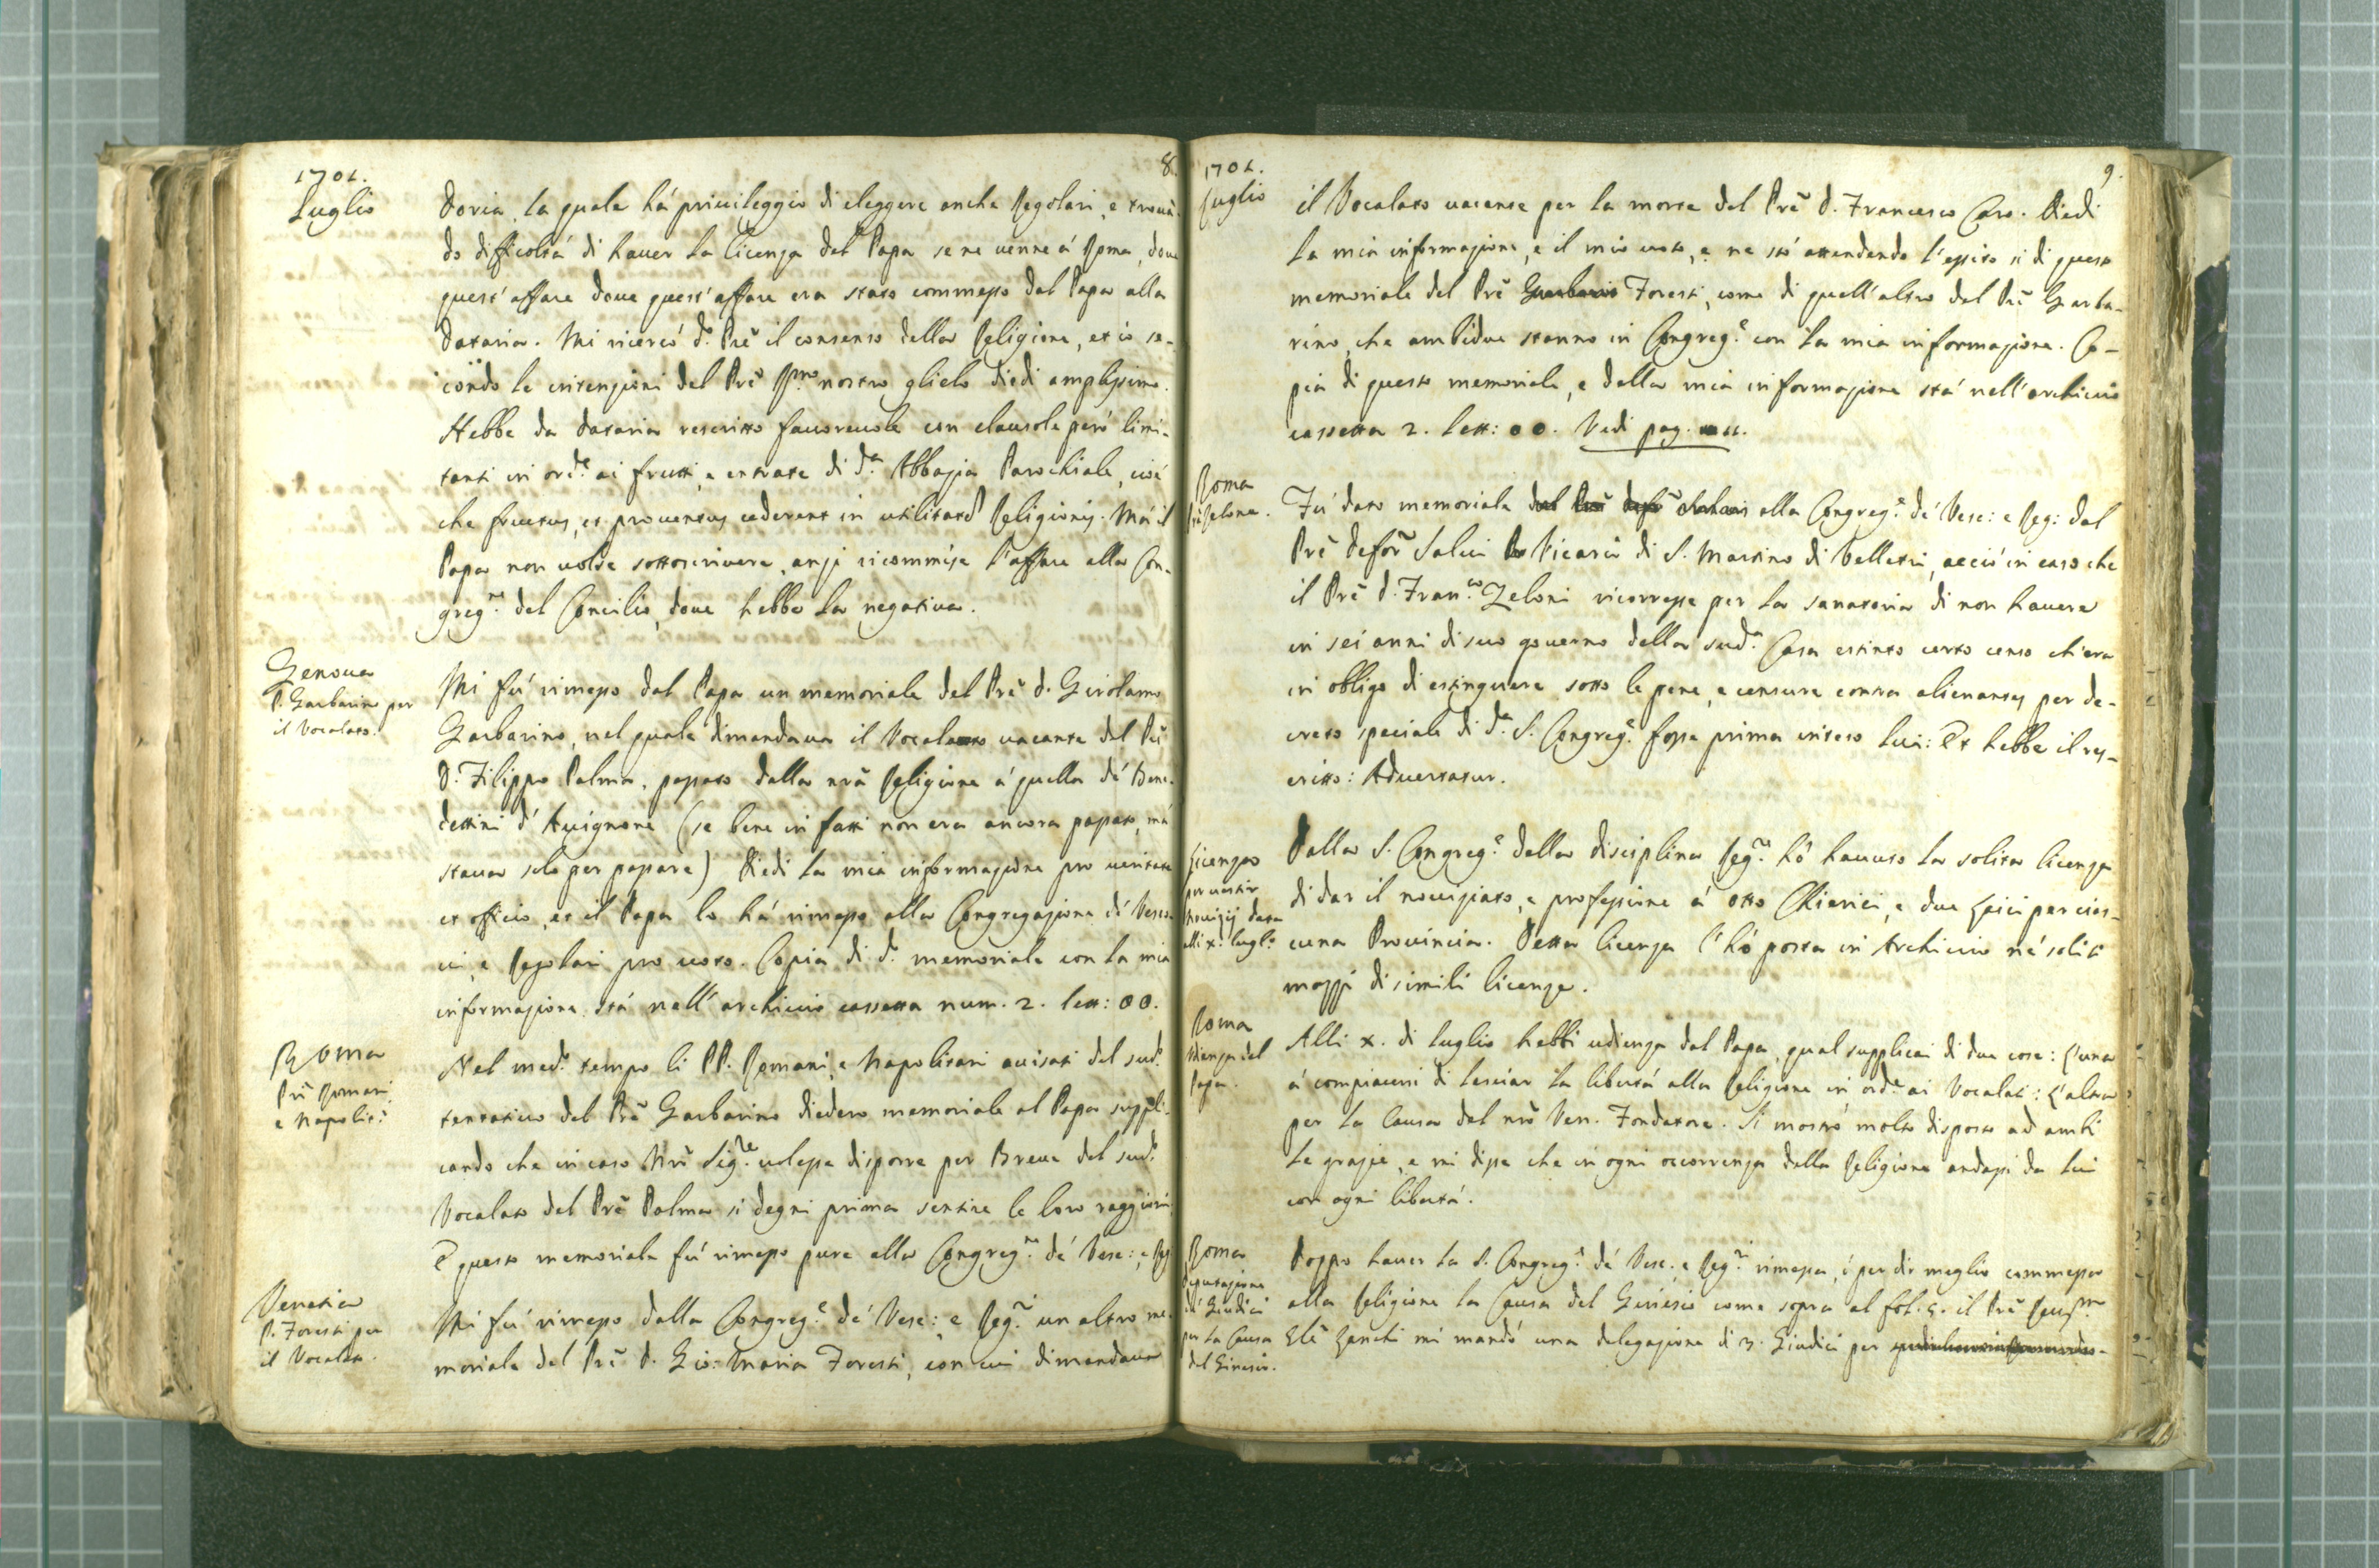 1701.
Luglio
8.
Doria, la quale há priuileggio di eleggere anche Regolari, e trouā-
do difficoltá di hauer la licenza del Papa se ne uenne á Roma, doue
quest'affare doue quest'affare era stato commesso dal Papa alla
Dataria. Mi ricercó d.º Prē il consenso della Religione, et io se-
condo le intenzioni del Prē Rmo nostro glielo diedi amplissimo.
Hebbe da Dataria rescritto fauoreuole con clausole peró limi-
tanti in ord.e ai frutti, e entrate di d.a Abbazia Parochiale, cioé
che fructus, et prouentus cederent in utilitatē Religionis. Má il
Papa non uolse sottoscriuere, anzi ricommise l'affare alla Con-
greg.ne del Concilio, doue hebbe la negatiua.
Genoua
P. Garbarino per
il Vocalato.
Mi fú rimesso dal Papa un memoriale del Prē D. Girolamo
Garbarino, nel quale dimandaua il Vocalato uacante del Prē
D. Filippo Palma, passato dalla nrā Religione á quella dé Bene-
dettini d'Auignone (se bene in fatti non era ancora passato, má
staua solo per passare) Diedi la mia informazione pro ueritate
ex officio, et il Papa lo há rimesso alla Congregazione dé Vesco-
ui, e Regolari pro uoto. Copia di d.º memoriale con la mia
informazione stá nell'archiuio cassetta num. 2. lett: OO.
Roma
Prī Romani,
e Napolit.i
Nel med.º tempo li PP. Romani, e Napolitani auisati del sud.º
tentatiuo del Prē Garbarino diedero memoriale al Papa suppli-
cando che in caso Nrō Sig.re uolesse disporre per Breue del sud.º
Vocalato del Prē Palma si degni prima sentire le loro raggioni.
E questo memoriale fú rimesso pure alla Congreg.ne dé Vesc:, e Reg
Venetia
P. Foresti per
il Vocalato.
Mi fú rimesso dalla Congreg.e dé Vesc:, e Reg.i un altro me-
moriale del Prē D. Gio: Maria Foresti, con cui dimandaua
1701.
Luglio
9.
il Vocalato uacante per la morte del Prē D. Francesco Caro. Diedi
la mia informazione, e il mio uoto, e ne stó attendendo l'essito si di questo
memoriale del Prē Garbarin Foresti, come di quell'altro del Prē Garba-
rino, che ambidue stanno in Congreg.e con la mia informazione. Co-
pia di questo memoriale, e della mia informazione stá nell'archiuio
cassetta 2. lett: OO. Vedi pag. 11.
Roma
Prē Zelone.
Fú dato memoriale dal Prē alla Congreg.e dé Vesc: e Reg: dal
Prē Salui Vicario di S. Martino di Velletri, acció in caso che
il Prē D. Fran.co Zeloni ricorresse per la sanatoria di non hauere
in sei anni di suo gouerno della sud.a Casa estinto certo censo ch'era
in obligo di estinguere sotto le pene, e censure contra alienantes per de-
creto speciale di d.a S. Congreg.e fosse prima inteso lui: Et hebbe il res-
critto: Aduertatur.
Licenza
per uestir
Nouizij data
alli x. lugl.º
Dalla S. Congreg.e della disciplina Reg.re hó hauuto la solita licenza
di dar il nouiziato, e professione á otto Chierici, e due Laici per cias-
cuna Prouincia. Detta licenza l'hó posta in Archiuio né soliti
mazzi di simili licenze.
Roma
Udienza del
Papa.
Alli x. di luglio hebbi udienza dal Papa, qual supplicai di due cose: L'una
á compiacersi di lasciar la libertá alla Religione in ord.e ai Vocalati: L'altra
per la Causa del nrō Ven. Fondatore. Si mostró molto disposto ad ambi
le grazie, e mi disse che in ogni occorrenza della Religione andassi da lui
con ogni libertá.
Roma
Deputazione
dé Giudici
per la Causa
del Ginesio.
Doppo hauer la S. Congreg.e dé Vesc. e Reg.i rimessa, ó per dir meglio commessa
alla Religione la Causa del Ginesio come sopra al fol. 5. il Prē Reu.mo
Glē Zanchi mi mandó una delegazione di 3. Giudici per